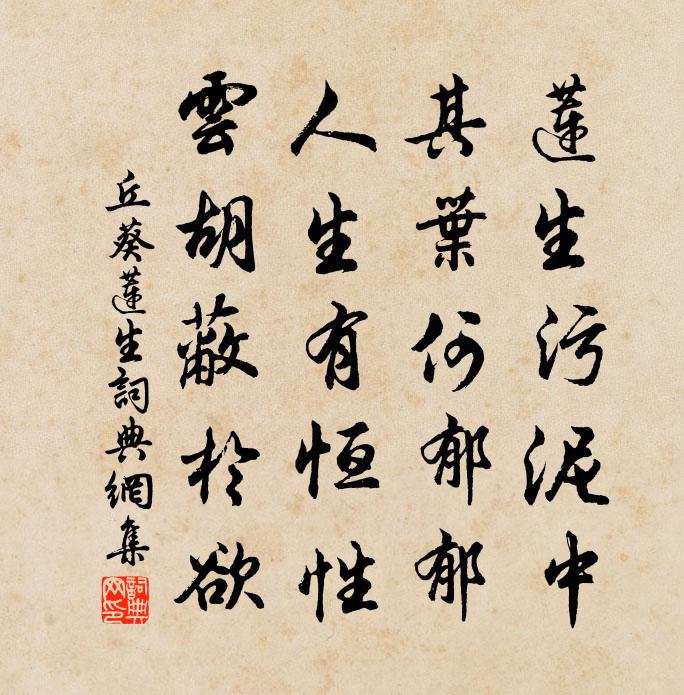 蓮生污泥中
其葉何郁郁
人生有恒性
雲胡蔽於欲
丘葵蓮生詞典網集
詞典網印